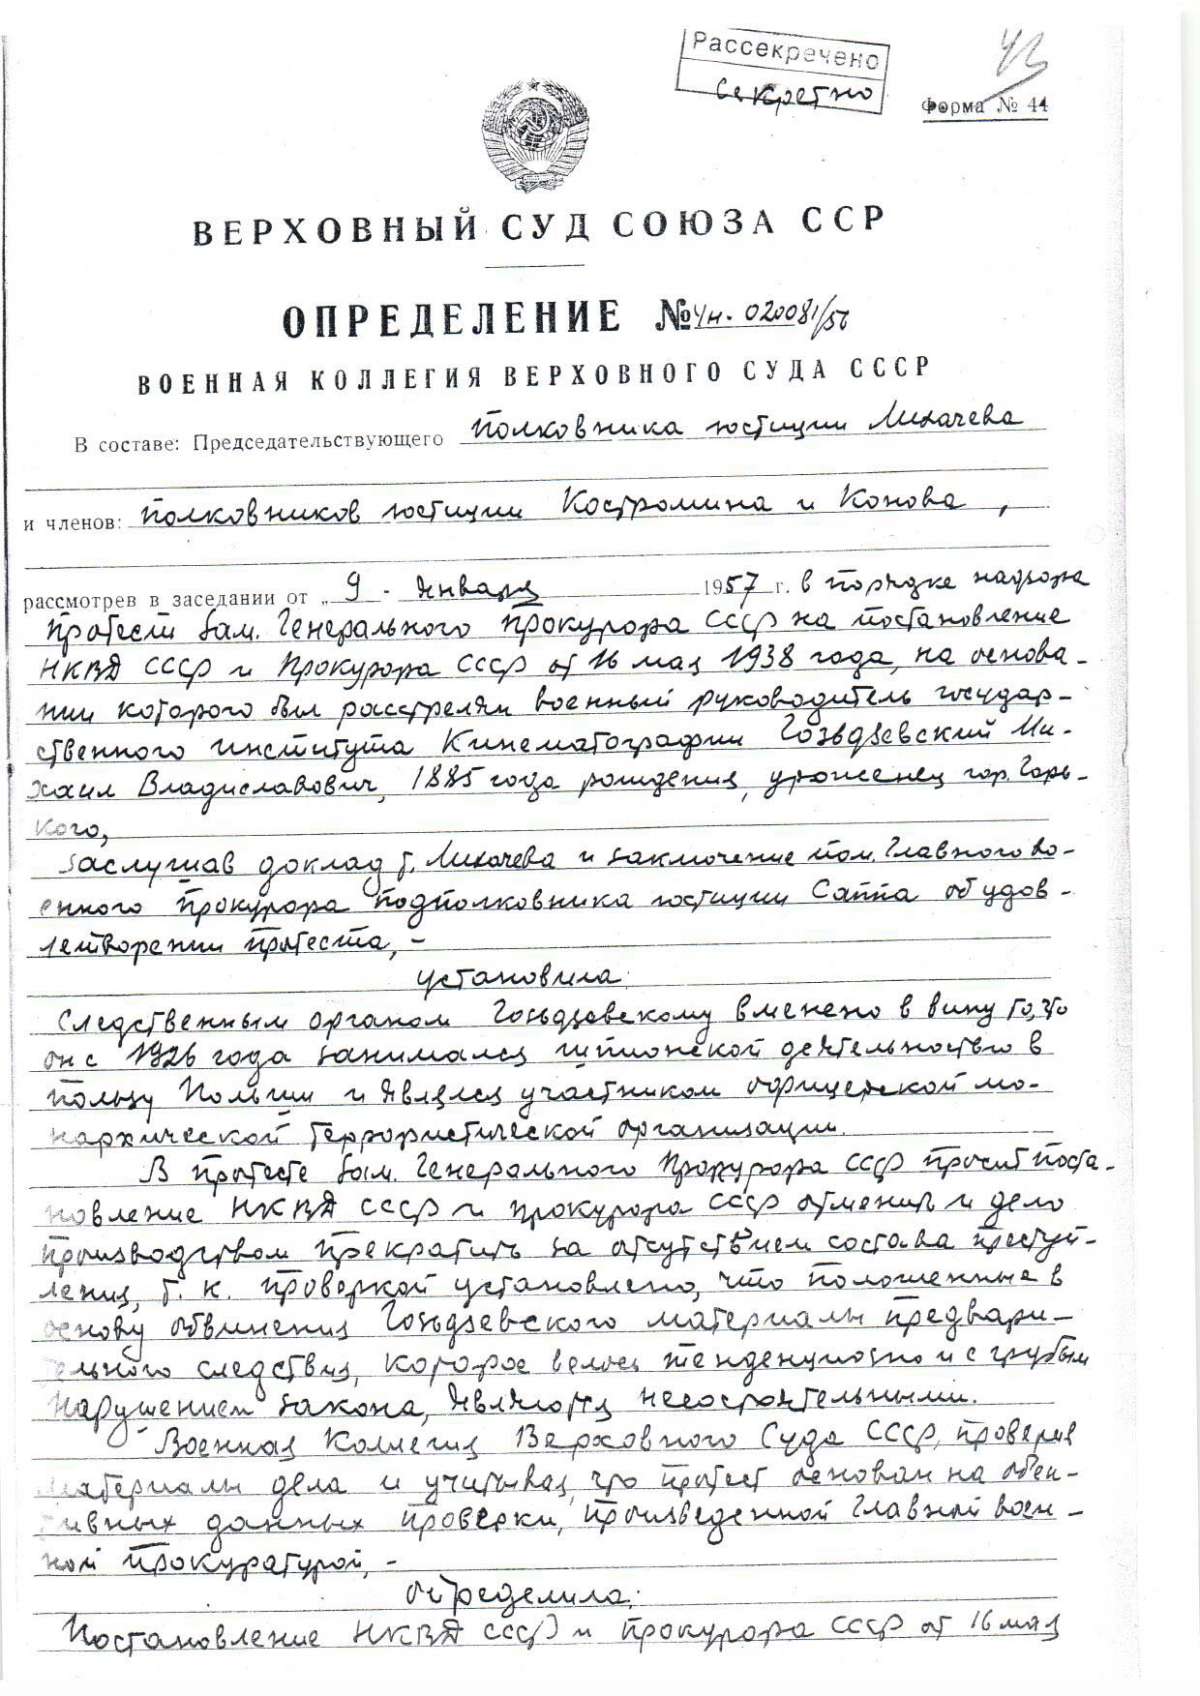 Рассекречено
Секретно
43
Форма № 44
ВЕРХОВНЫЙ СУД СОЮЗА ССР
ОПРЕДЕЛЕНИЕ № 4н-020081/56
ВОЕННАЯ КОЛЛЕГИЯ ВЕРХОВНОГО СУДА СССР
В составе: Председательствующего полковника юстиции Лихачева
и членов: полковников юстиции Костромина и Конова,
рассмотрев в заседании от „ 9 - января 1957 г. в порядке надзора
протест Зам. Генерального Прокурора СССР на постановление
НКВД СССР и Прокурора СССР от 16 мая 1938 года, на основа-
нии которого был расстрелян военный руководитель государ-
ственного института Кинематографии Гоздзевский Ми-
хаил Владиславович, 1885 года рождения, уроженец гор. Горь-
кого,
Заслушав доклад т. Лихачева и заключение пом. Главного во-
енного прокурора подполковника юстиции Саппа об удов-
летворении протеста, -
установила:
Следственным органом Гоздзевскому вменено в вину то, что
он с 1926 года занимался шпионской деятельностью в
пользу Польши и являлся участником офицерской мо-
нархической террористической организации.
В протесте Зам. Генерального Прокурора СССР просит поста-
новление НКВД СССР и прокурора СССР отменить и дело
производством прекратить за отсутствием состава преступ-
ления, т. к. проверкой установлено, что положенные в
основу обвинения Гоздзевского материалы предвари-
тельного следствия, которое велось тенденциозно и с грубым
нарушением закона, являются несостоятельными.
Военная Коллегия Верховного Суда СССР, проверив
материалы дела и учитывая, что протест основан на объек-
тивных данных проверки, произведенной Главной воен-
ной прокуратурой, -
определила:
Постановление НКВД СССР и прокурора СССР от 16 мая